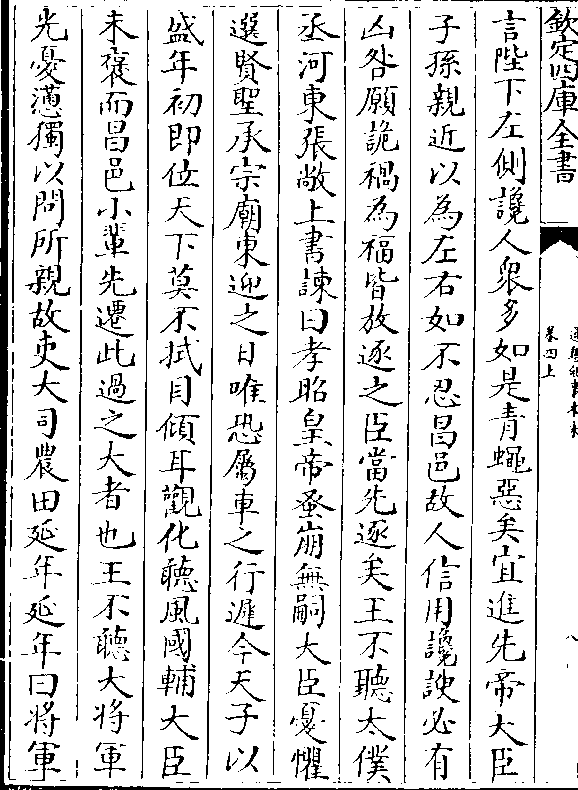 欽定四庫全書
卷四上
言陛下左側讒人衆多如是青蠅惡矣宜進先帝大臣
子孫親近以為左右如不忍昌邑故人信用讒諛必有
凶咎願詭禍為福皆放逐之臣當先逐矣王不聽太僕
丞河東張敞上書諫曰孝昭皇帝蚤崩無嗣大臣憂懼
選賢聖承宗廟東迎之日唯恐屬車之行遲今天子以
盛年初即位天下莫不拭目傾耳觀化聽風國輔大臣
未襃而昌邑小輩先遷此過之大者也王不聽大將軍
光憂懣獨以問所親故吏大司農田延年延年曰將軍